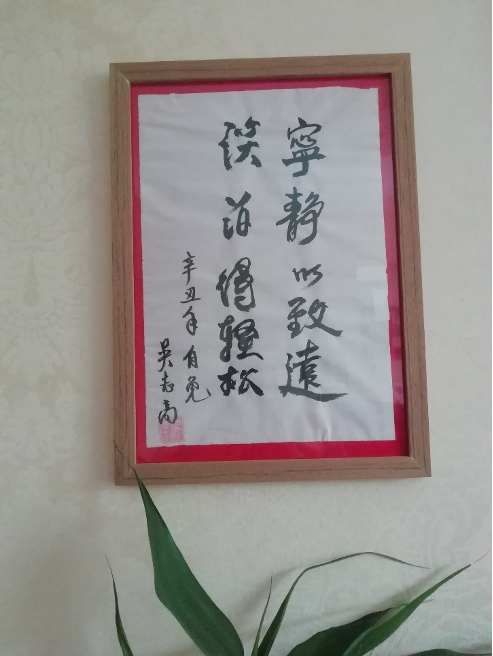 寧靜以致遠
淡泊得輕松
辛丑年自勉
吴志高